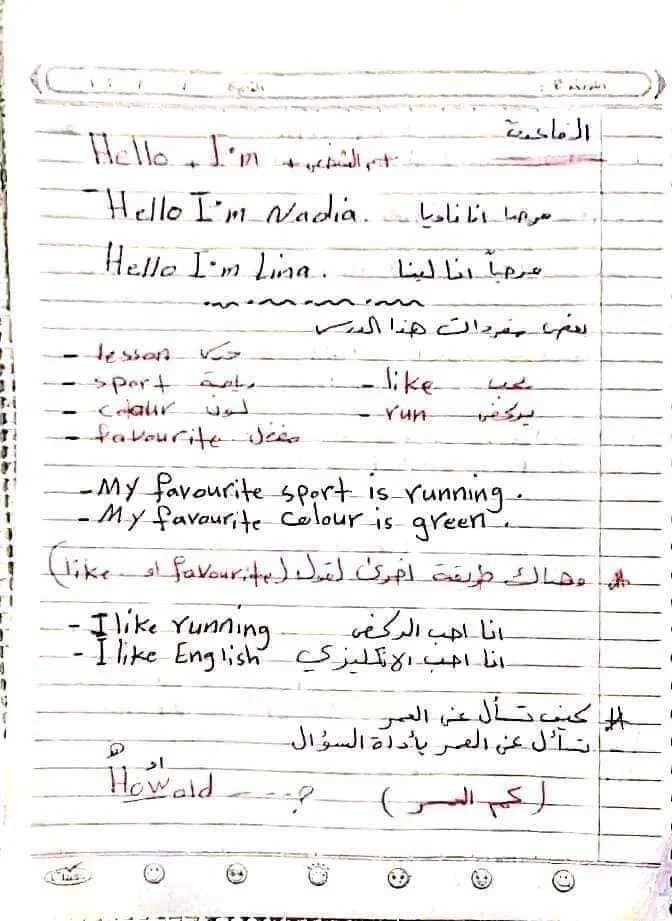 Hello + I'm + اسم الشخص
- Hello I'm Nadia. مرحبا انا ناديا
Hello I'm Lina. مرحباً انا لينا
بعض مفردات هذا الدرس
- lesson
- sport رياضة - like يحب
- colour لون - run يركض
- favourite مفضل
- My favourite sport is running.
- My favourite colour is green.
* وهناك طريقة اخرى لقول (favourite او like)
- I like running انا احب الركض
- I like English انا احب الانكليزي
# كيف تسأل عن العمر
- تسأل عن العمر بأداة السؤال
هـ او
How old ج (كم العمر)